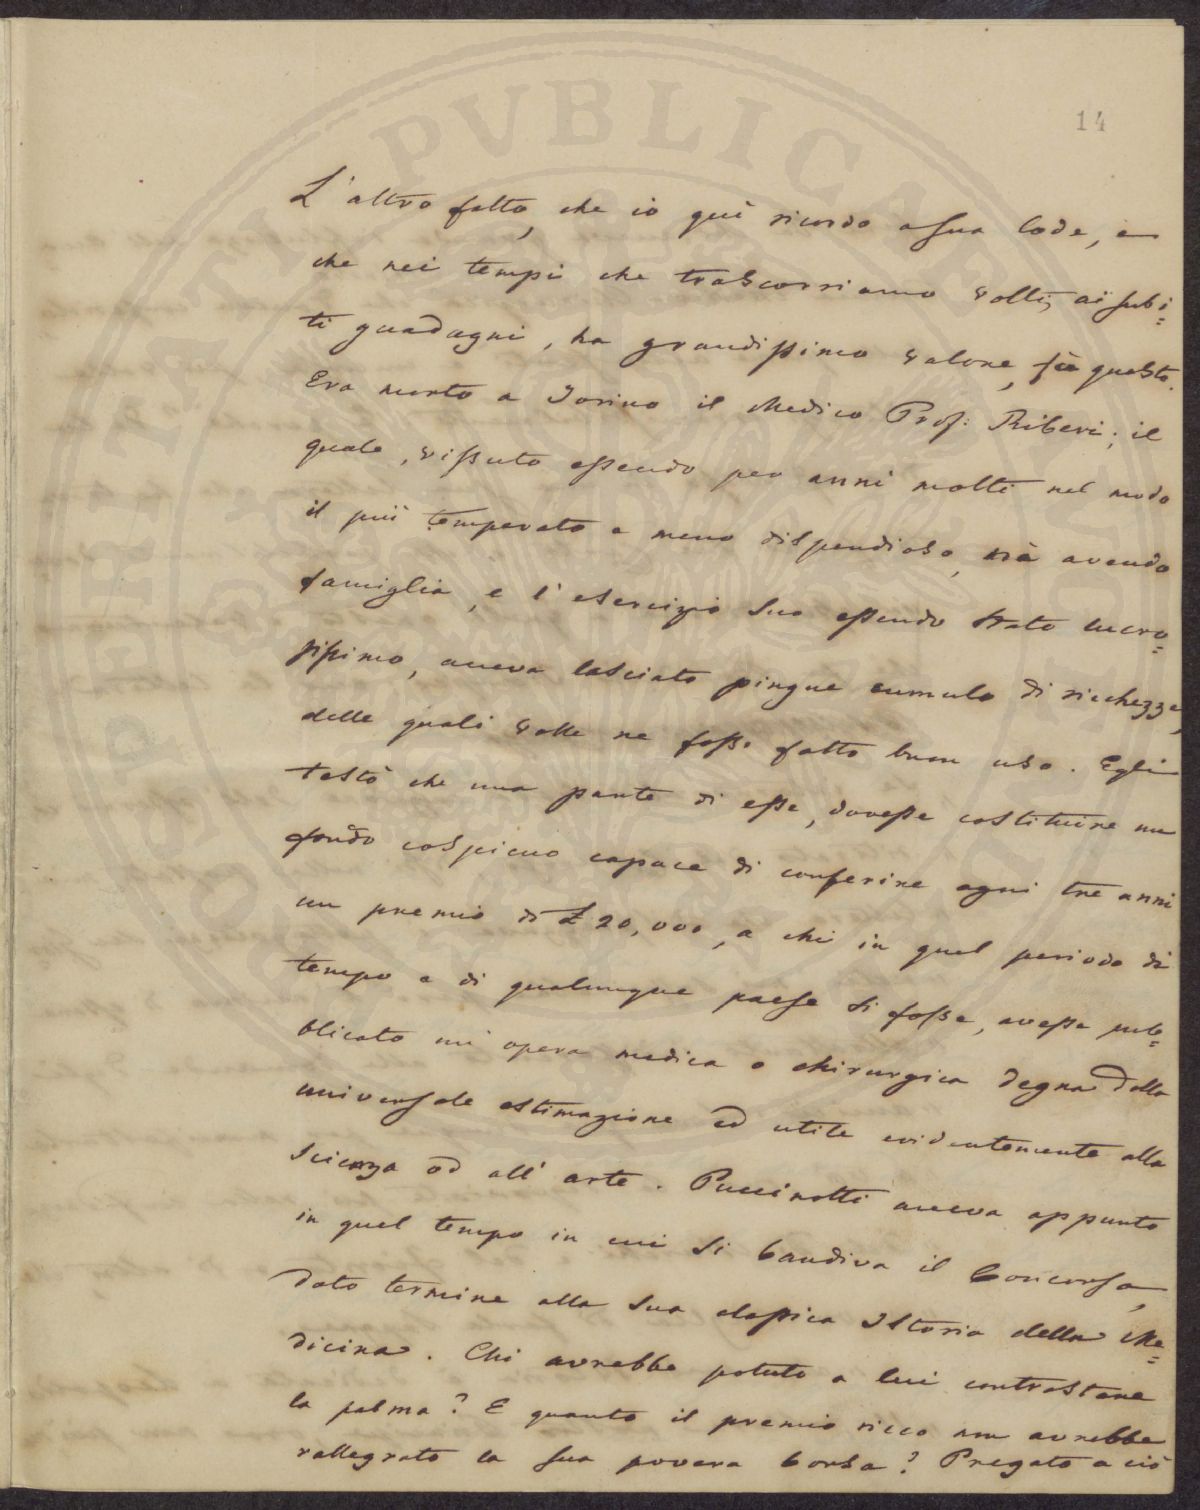 14
L'altro fatto, che io quì ricordo a sua lode, e
che nei tempi che trascorriamo volti ai subi=
ti guadagni, ha grandissimo valore, fu questo.
Era morto a Torino il Medico Prof: Riberi; il
quale, vissuto essendo per anni molti nel modo
il più temperato e meno dispendioso, nè avendo
famiglia, e l'esercizio suo essendo stato lucro=
sissimo, aveva lasciato pingue cumulo di ricchezze,
delle quali volle ne fosse fatto buon uso. Egli
testò che una parte di esse, dovesse costituire un
fondo cospicuo capace di conferire ogni tre anni
un premio di £ 20,000, a chi in quel periodo di
tempo e di qualunque paese si fosse, avesse pub=
blicato un'opera medica o chirurgica degna della
universale estimazione ed utile evidentemente alla
scienza od all'arte. Puccinotti aveva appunto
in quel tempo in cui si bandiva il Concorso,
dato termine alla sua classica Istoria della Me=
dicina. Chi avrebbe potuto a lui contrastare
la palma? E quanto il premio ricco non avrebbe
rallegrato la sua povera borsa? Pregato a ciò
PVBLICAE